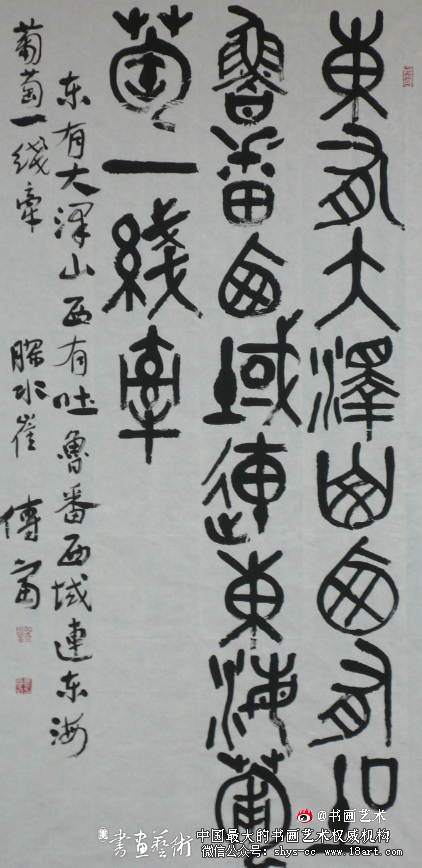 東有大澤山西有吐
魯番西域連東海葡
萄一綫牽
东有大泽山西有吐鲁番西域連东海
葡萄一綫牵 胶水崔傳富
@书画艺术
書畫藝術 中国最大的书画艺术权威机构
微信公众号：shys-cc www.18art.com